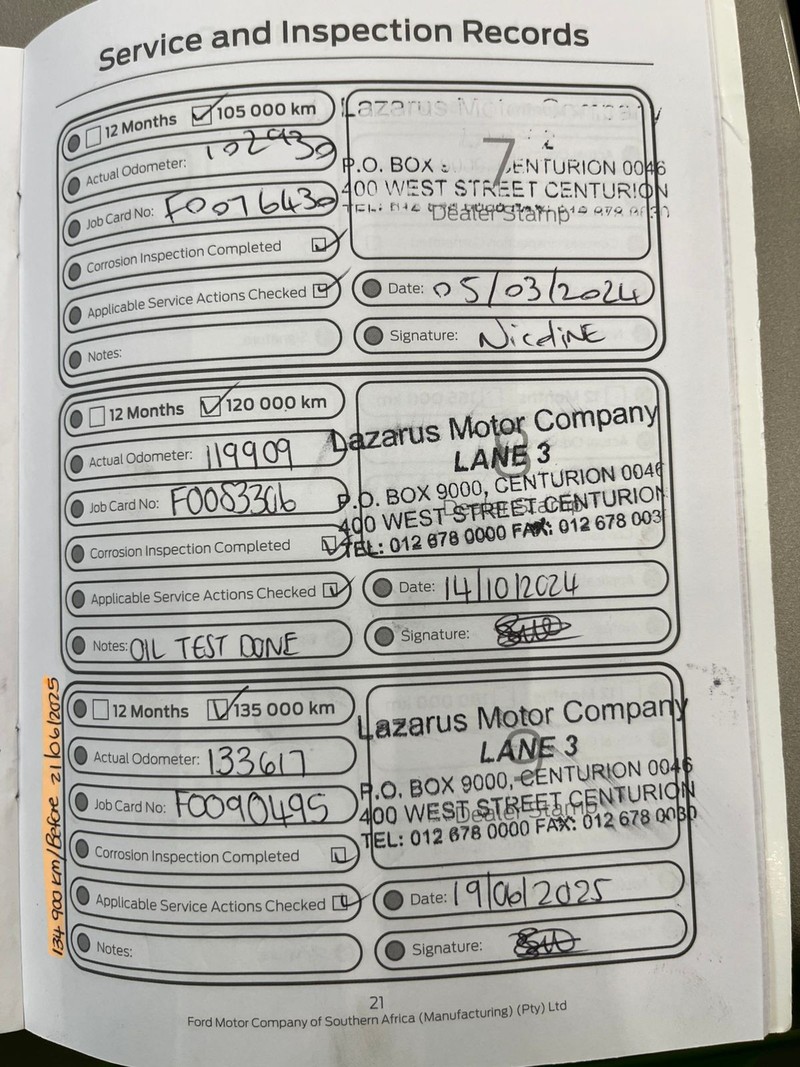 Service and Inspection Records
12 Months 105 000 km
Actual Odometer: 102930
Job Card No: F0076430
Corrosion Inspection Completed
Applicable Service Actions Checked
Notes:
Lazarus Motor
7
P.O. BOX CENTURION 0046
400 WEST STREET CENTURION
TEL:
Dealer Stamp
Date: 05/03/2024
Signature: Nicoline
12 Months 120 000 km
Actual Odometer: 119909
Job Card No: F0083306
Corrosion Inspection Completed
Applicable Service Actions Checked
Notes: OIL TEST DONE
8
Lazarus Motor Company
LANE 3
P.O. BOX 9000, CENTURION 0046
400 WEST STREET CENTURION
TEL: 012 678 0000 FAX: 012 678 003
Date: 14/10/2024
Signature:
134 900 km/Before 21/06/2025
12 Months 135 000 km
Actual Odometer: 133617
Job Card No: F0090495
Corrosion Inspection Completed
Applicable Service Actions Checked
Notes:
9
Lazarus Motor Company
LANE 3
P.O. BOX 9000, CENTURION 0046
400 WEST STREET CENTURION
Dealer Stamp
TEL: 012 678 0000 FAX: 012 678 0030
Date: 19/06/2025
Signature:
21
Ford Motor Company of Southern Africa (Manufacturing) (Pty) Ltd